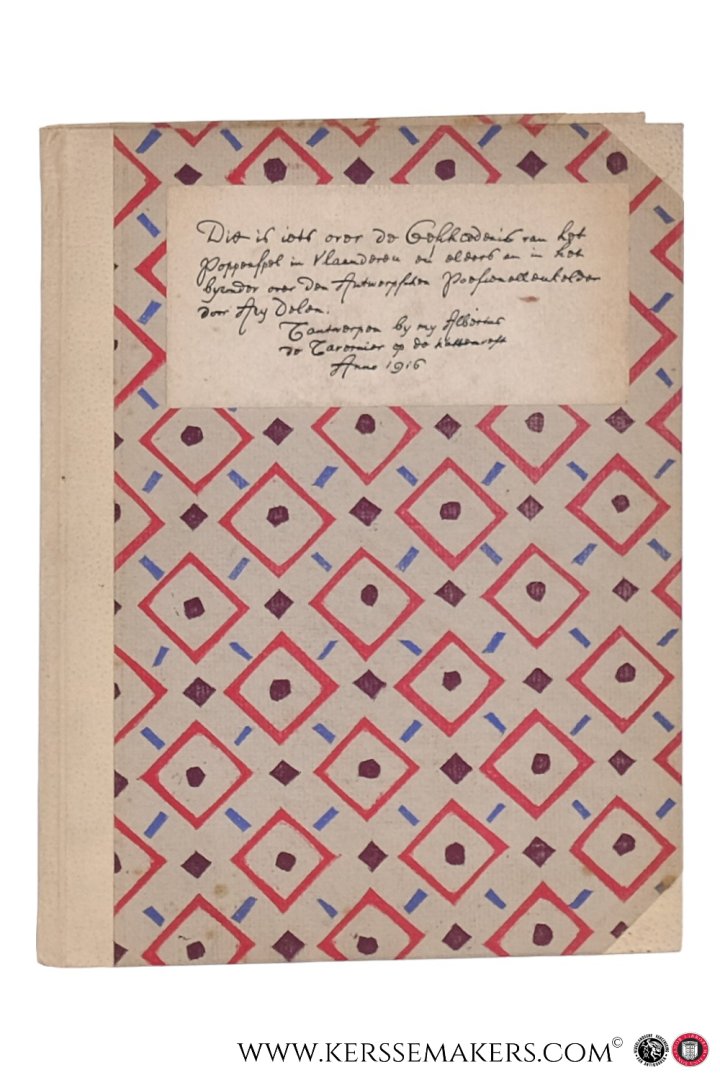 Dit is iets over de Geschiedenis van het
Poppenspel in Vlaanderen en elders en in het
byzonder over den Antwerpschen Poesjenellenkelder
door Ary Delen.
T'antwerpen by my Albertus
de Tavernier op de
Anno 1916
WWW.KERSSEMAKERS.COM©